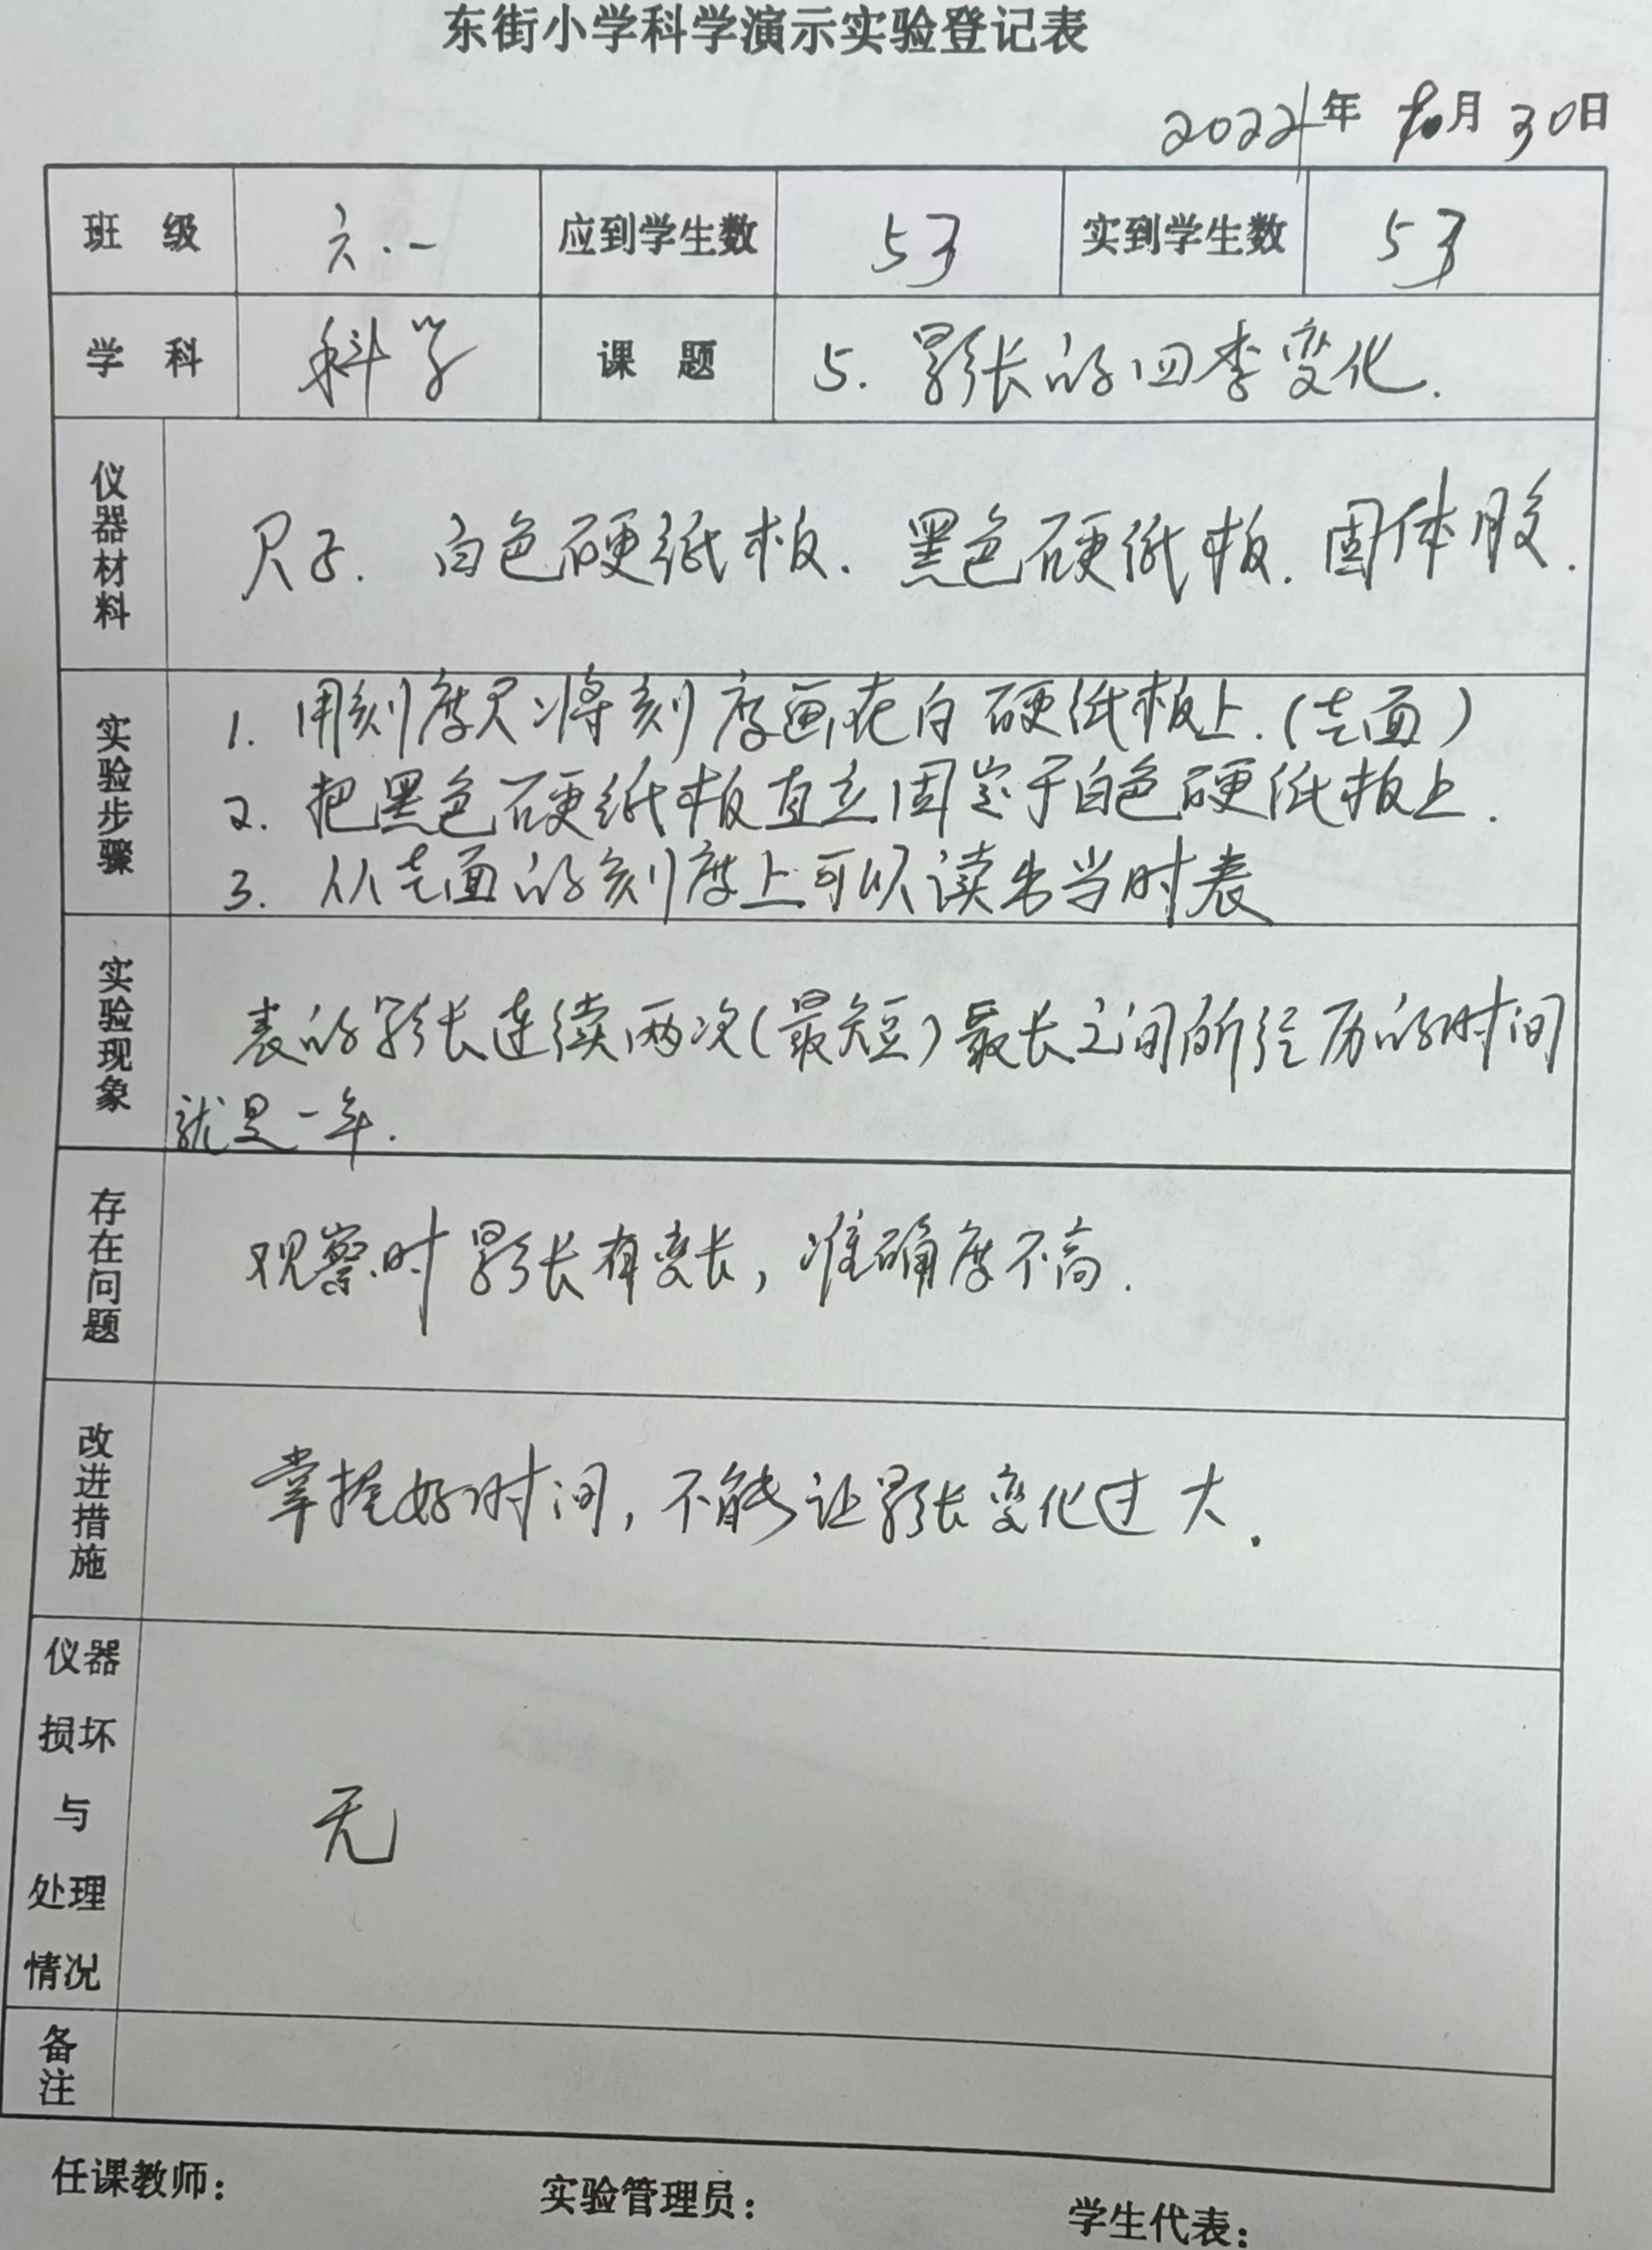 东街小学科学演示实验登记表
2022年 10月 30日
班 级 六.一 应到学生数 53 实到学生数 53
学 科 科学 课 题 5. 影长的四季变化.
仪器材料 尺子. 白色硬纸板. 黑色硬纸板. 固体胶.
实验步骤 1. 用刻度尺将刻度画在白硬纸板上.(圭面)
2. 把黑色硬纸板直立固定于白色硬纸板上.
3. 从圭面的刻度上可以读出当时表
实验现象 表的影长连续两次(最短)最长之间所经历的时间
就是一年.
存在问题 观察时影长有变长,准确度不高.
改进措施 掌握好时间,不能让影长变化过大.
仪器
损坏
与 无
处理
情况
备注
任课教师: 实验管理员: 学生代表: